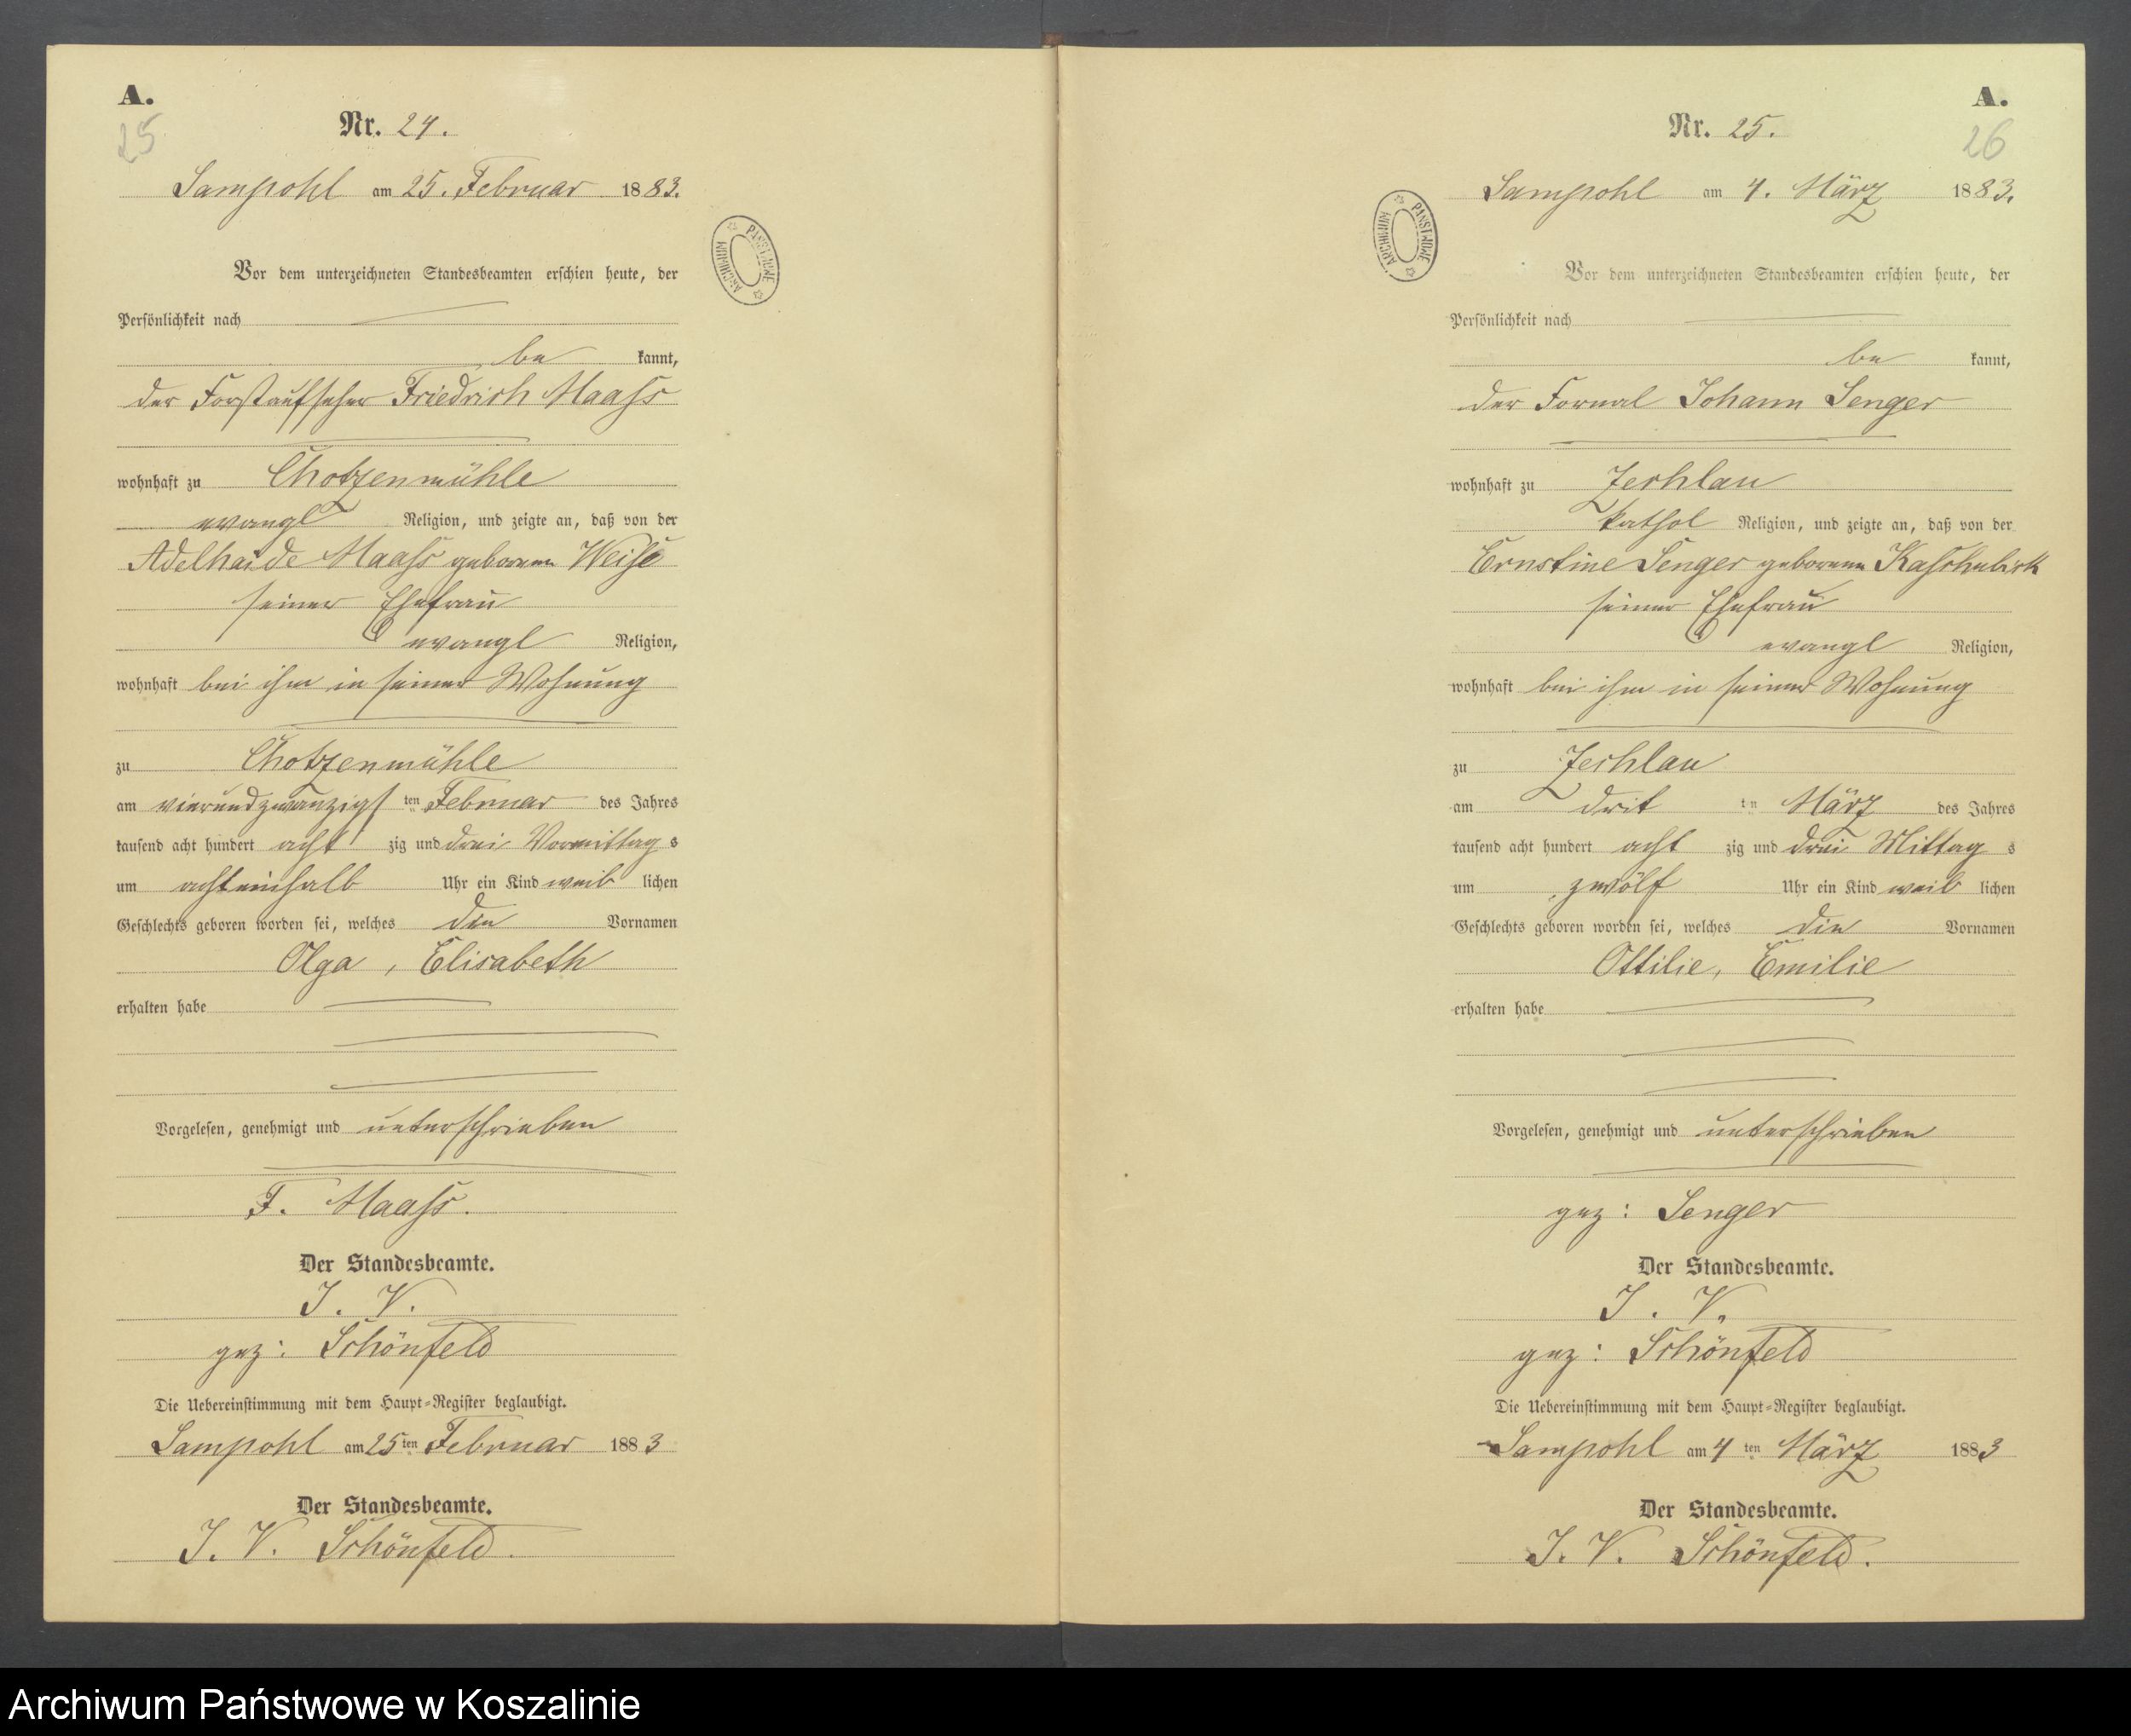 A.
25
Nr. 24.
Sampohl am 25. Februar 1883.
Vor dem unterzeichneten Standesbeamten erschien heute, der
Persönlichkeit nach
be kannt,
der Forstaufseher Friedrich Maaß
wohnhaft zu Chotzenmühle
evangl Religion, und zeigte an, daß von der
Adelhaide Maaß geborenen Weiße
seiner Ehefrau
evangl Religion,
wohnhaft bei ihm in seiner Wohnung
zu Chotzenmühle
am vierundzwanzigsten Februar des Jahres
tausend acht hundert acht zig und drei Vormittag s
um achteinhalb Uhr ein Kind weib lichen
Geschlechts geboren worden sei, welches die Vornamen
Olga, Elisabeth
erhalten habe
Vorgelesen, genehmigt und unterschrieben
F. Maaß.
Der Standesbeamte.
J. V.
gez: Schönfeld
Die Uebereinstimmung mit dem Haupt-Register beglaubigt.
Sampohl am 25ten Februar 1883
Der Standesbeamte.
J. V. Schönfeld.
ARCHIWUM PAŃSTWOWE
A.
26
Nr. 25.
Sampohl am 4. März 1883.
ARCHIWUM PAŃSTWOWE
Vor dem unterzeichneten Standesbeamten erschien heute, der
Persönlichkeit nach
be kannt,
der Fornal Johann Senger
wohnhaft zu Zechlau
kathol Religion, und zeigte an, daß von der
Ernstine Senger geborenen
seiner Ehefrau
evangl Religion,
wohnhaft bei ihm in seiner Wohnung
zu Zechlau
am drit ten März des Jahres
tausend acht hundert acht zig und drei Mittag s
um zwölf Uhr ein Kind weib lichen
Geschlechts geboren worden sei, welches die Vornamen
Ottilie, Emilie
erhalten habe
Vorgelesen, genehmigt und unterschrieben
gez: Senger
Der Standesbeamte.
J. V.
gez: Schönfeld
Die Uebereinstimmung mit dem Haupt-Register beglaubigt.
Sampohl am 4 ten März 1883
Der Standesbeamte.
J. V. Schönfeld.
Archiwum Państwowe w Koszalinie